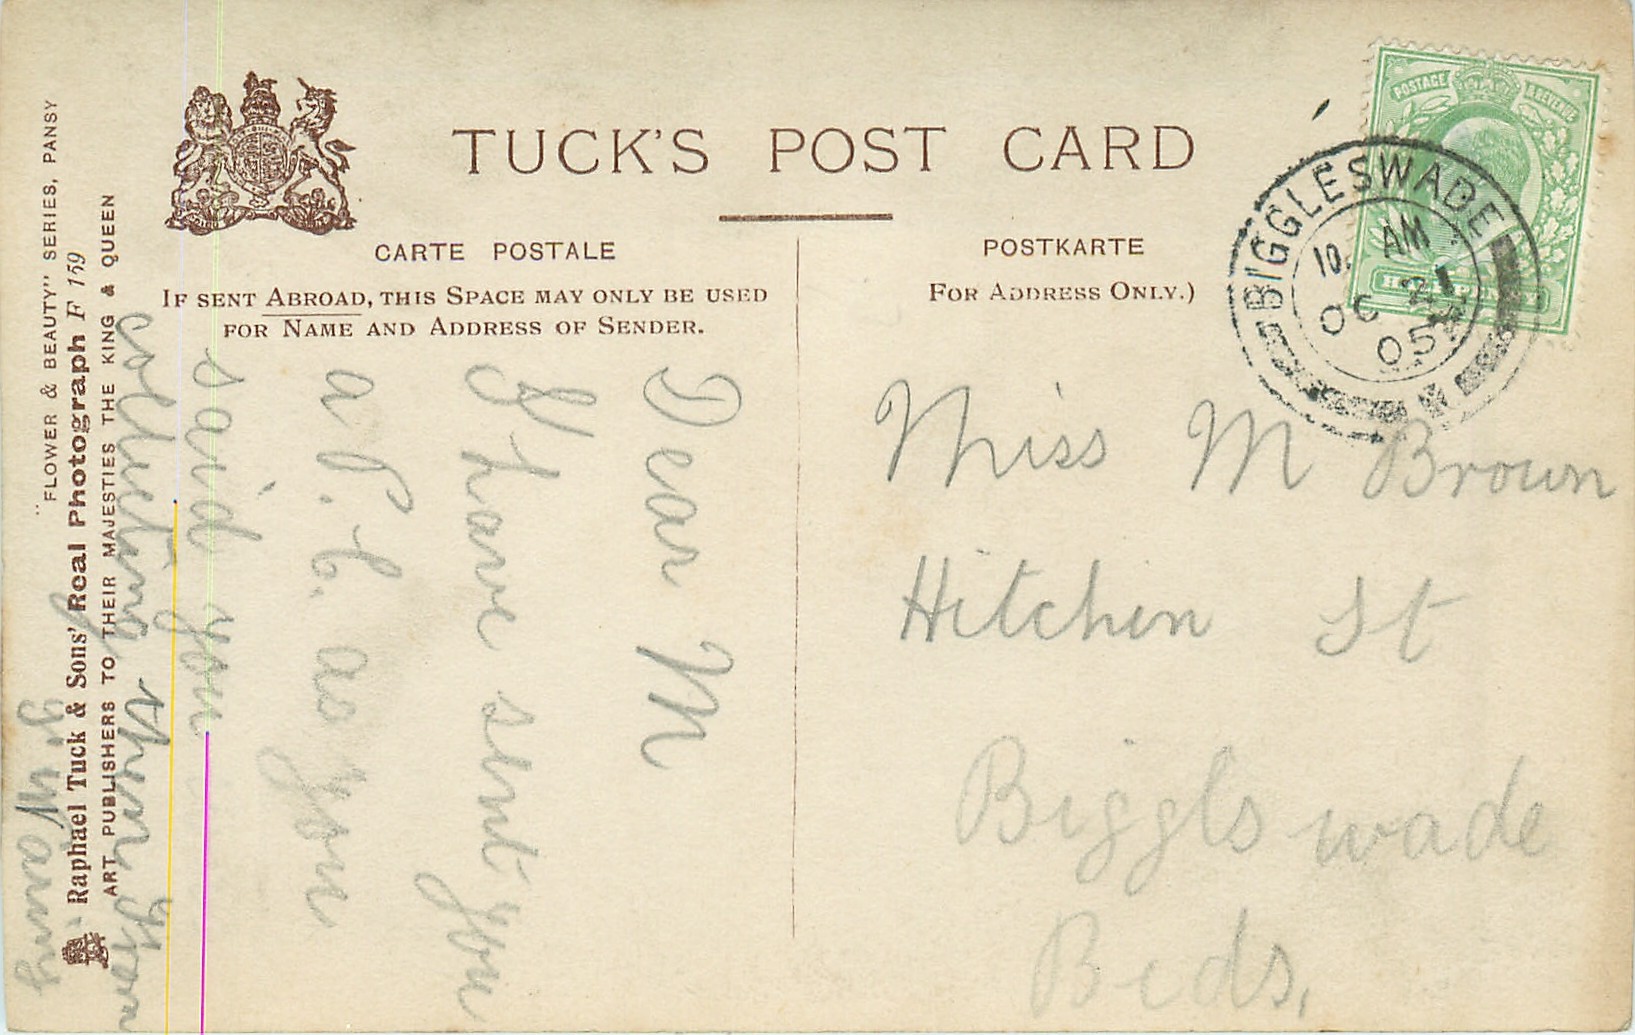 TUCK'S POST CARD
CARTE POSTALE
POSTKARTE
IF SENT ABROAD, THIS SPACE MAY ONLY BE USED
FOR NAME AND ADDRESS OF SENDER.
FOR ADDRESS ONLY.)
POSTAGE & REVENUE
HALFPENNY
BIGGLESWADE
10. AM
OC 21
05
Miss M Brown
Hitchin St
Biggls wade
Beds,
Dear M
I have sent you
a P. C. as you
said you
collecting them from
Nanny
"FLOWER & BEAUTY" SERIES, PANSY
Raphael Tuck & Sons' Real Photograph F 159
ART PUBLISHERS TO THEIR MAJESTIES THE KING & QUEEN